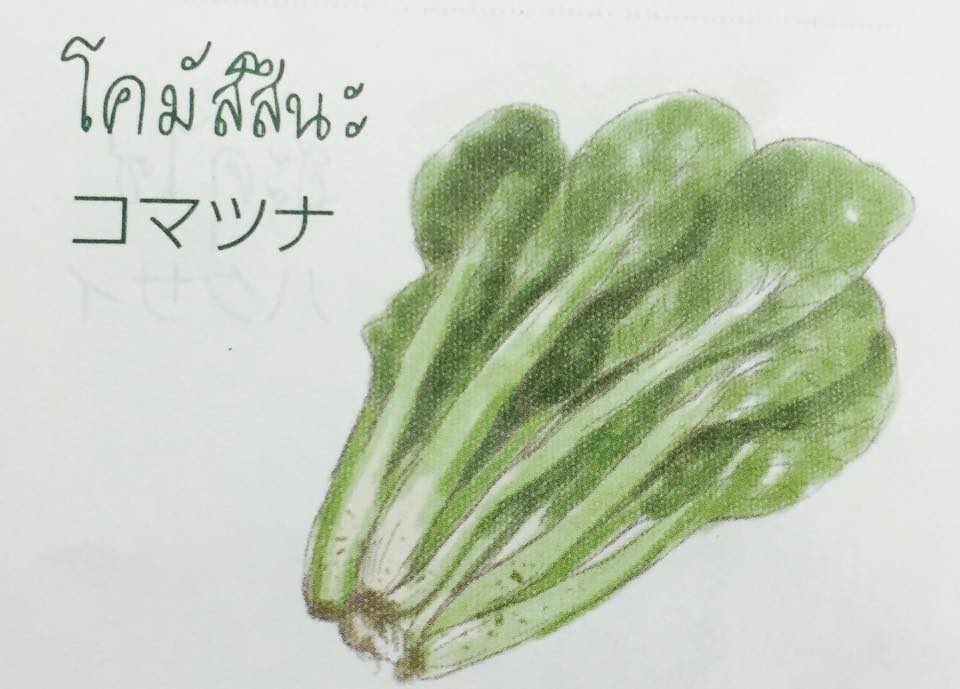 โคมัสสึนะ
コマツナ